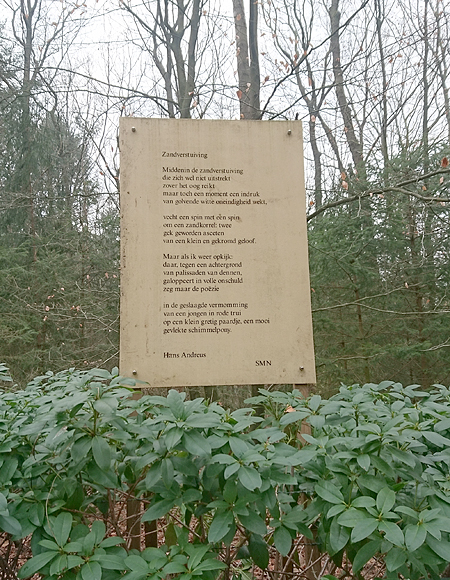 Zandverstuiving
Midden in de zandverstuiving
die zich wel niet uitstrekt
zover het oog reikt
maar toch een moment een indruk
van golvende witte oneindigheid wekt,
vecht een spin met een spin
om een zandkorrel: twee
gek geworden asceten
van een klein en gekromd geloof.
Maar als ik weer opkijk:
daar, tegen een achtergrond
van palissaden van dennen,
galoppeert in volle onschuld
zeg maar de poëzie
in de geslaagde vermomming
van een jongen in rode trui
op een klein gretig paardje, een mooi
gevlekte schimmelpony.
Hans Andreus
SMN